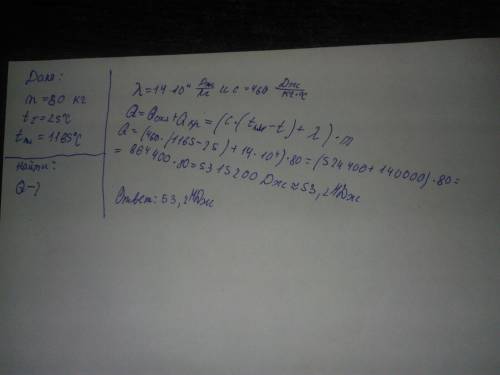 Дано:
m = 80 кг
t = 25°C
tпл = 1165°C
найти:
Q - ?
λ = 14 · 10⁴ Дж/кг и c = 460 Дж/кг·°C
Q = Qнагр + Qпл = (c · (tпл - t) + λ) · m
Q = (460 · (1165 - 25) + 14 · 10⁴) · 80 = (524400 + 140000) · 80 =
= 664400 · 80 = 5315200 Дж ≈ 53,2 МДж
Ответ: 53,2 МДж